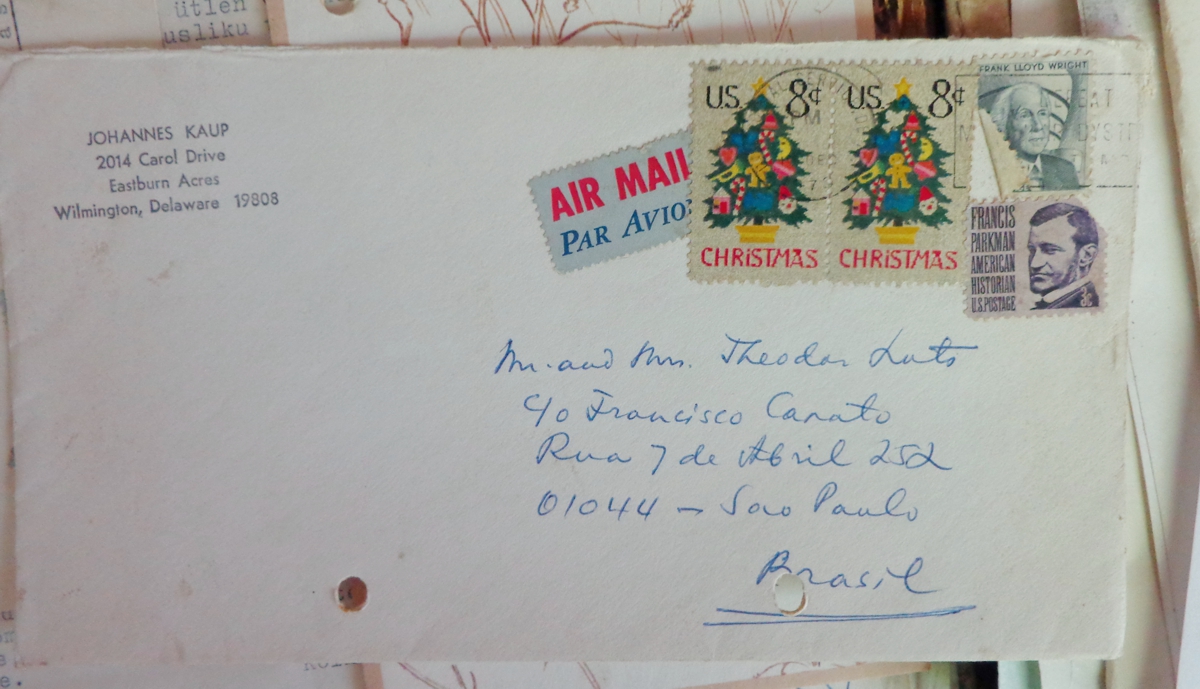 ütlen
usliku
JOHANNES KAUP
2014 Carol Drive
Eastburn Acres
Wilmington, Delaware 19808
AIR MAIL
PAR AVIO
U.S. 8¢
CHRISTMAS
U.S. 8¢
CHRISTMAS
FRANK LLOYD WRIGHT
FRANCIS
PARKMAN
AMERICAN
HISTORIAN
U.S. POSTAGE
3c
Mr. and Mrs. Theodor Luts
c/o Francisco Canato
Rua 7 de Abril 252
01044 - Sao Paulo
Brasil